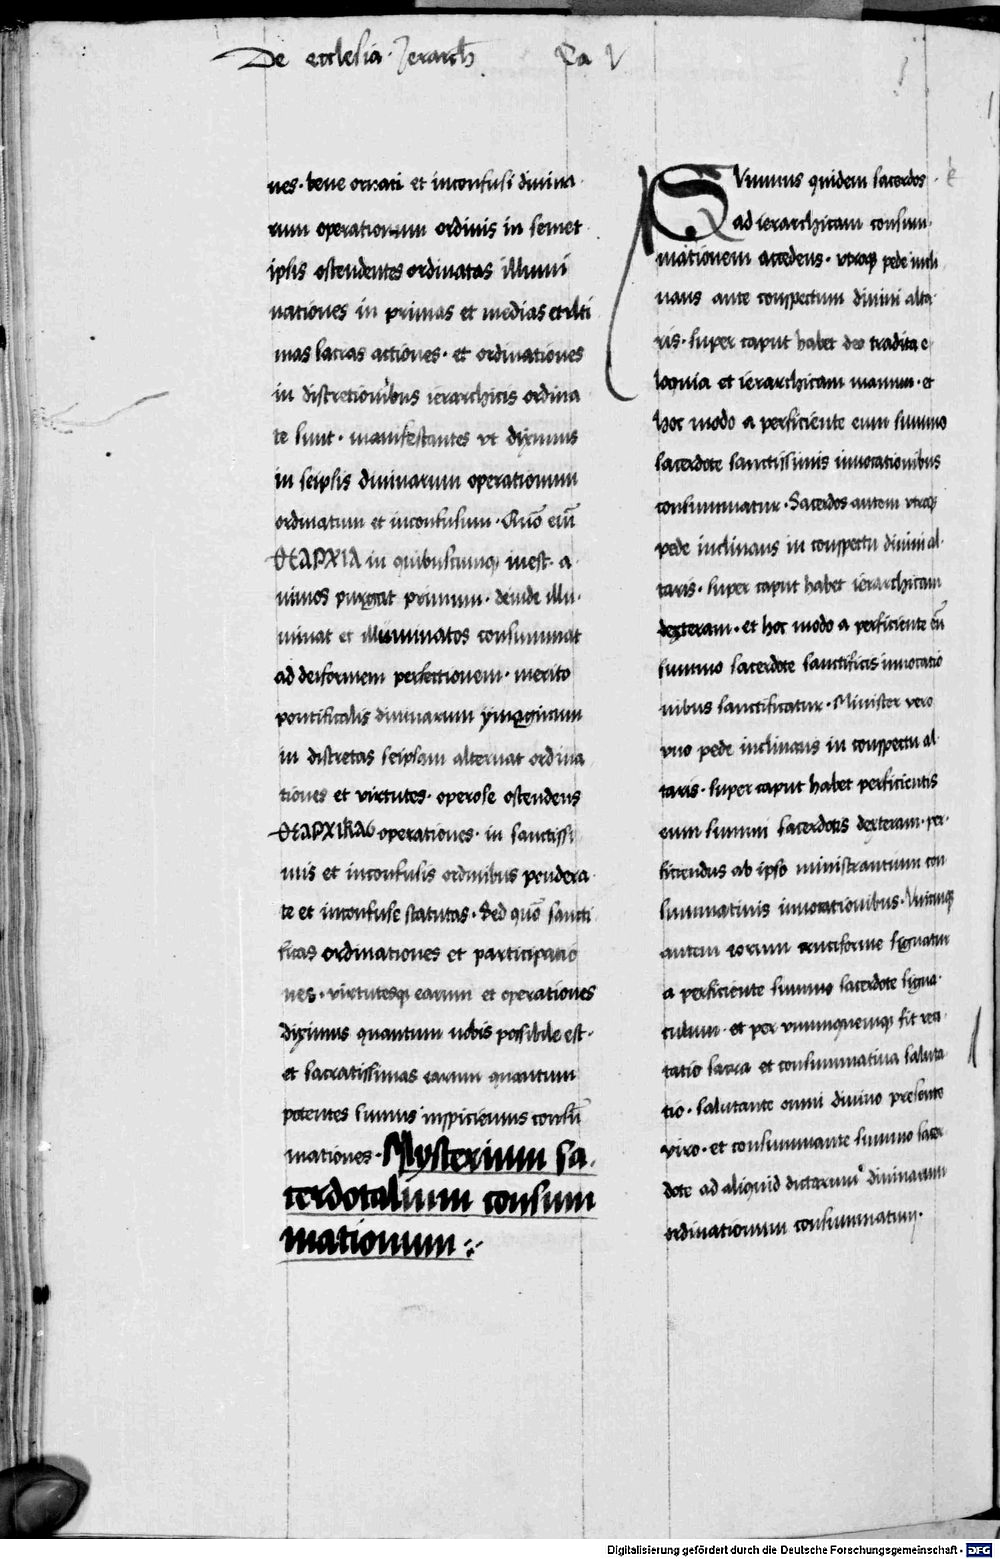 De ecclesia. Jerarch. Ca V
nes. bene ornati et inconfusi divina
rum operationum ordinis in semet
ipsis ostendentes ordinatas illumi
nationes in primas et medias et ulti
mas sacras actiones. et ordinationes
in discretionibus ierarchicis ordina
te sunt. manifestantes ut diximus
in seipsis divinarum operationum
ordinatum et inconfusum. Quō eiī
ΘΕΑΡΧΙΑ in quibuscumq; inest. a
nimos purgat primum. deinde illu.
minat et illuminatos consummat
ad deiformem perfectionem. merito
pontificalis divinarum ymaginum
in discretas seipsam alternat ordina
tiones et virtutes. operose ostendens
ΘΕΑΡΧΙΚΑϹ operationes. in sanctissi
mis et inconfusis ordinibus pondera
te et inconfuse statutas. Sed quō sancti
ficas ordinationes et participatio
nes. virtutesq; earum et operationes
diximus quantum nobis possibile est.
et sacratissimas earum quantum
potentes sumus inspiciemus consū
mationes. Mysterium sa.
cerdotalium consum
mationum :~
SUmmus quidem sacerdos.
ad ierarchicam consum.
mationem accedens. utroq; pede incli
nans ante conspectum divini alta
ris. super caput habet deo tradita e
loquia et ierarchicam manum. et
hoc modo a perficiente eum summo
sacerdote sanctissimis invocationibus
consummatur. Sacerdos autem utroq;
pede inclinans in conspectu divini al.
taris. super caput habet ierarchicam
dexteram. et hoc modo a perficiente eū
summo sacerdote sanctificis invocatio
nibus sanctificatur. Minister vero
uno pede inclinans in conspectu al
taris. super caput habet perficientis
eum summi sacerdotis dexteram. per.
ficiendus ab ipso ministrantium con
summativis invocationibus. Unicuiq;
autem eorum cruciforme signatur
a perficiente summo sacerdote signa.
culum. et per unumquemq; fit reci
tatio sacra et consummativa saluta
tio. salutante omni divino presente
viro. et consummante summo sacer
dote ad aliquid dictarum divinarum
ordinationum consummatum.
Digitalisierung gefördert durch die Deutsche Forschungsgemeinschaft - DFG